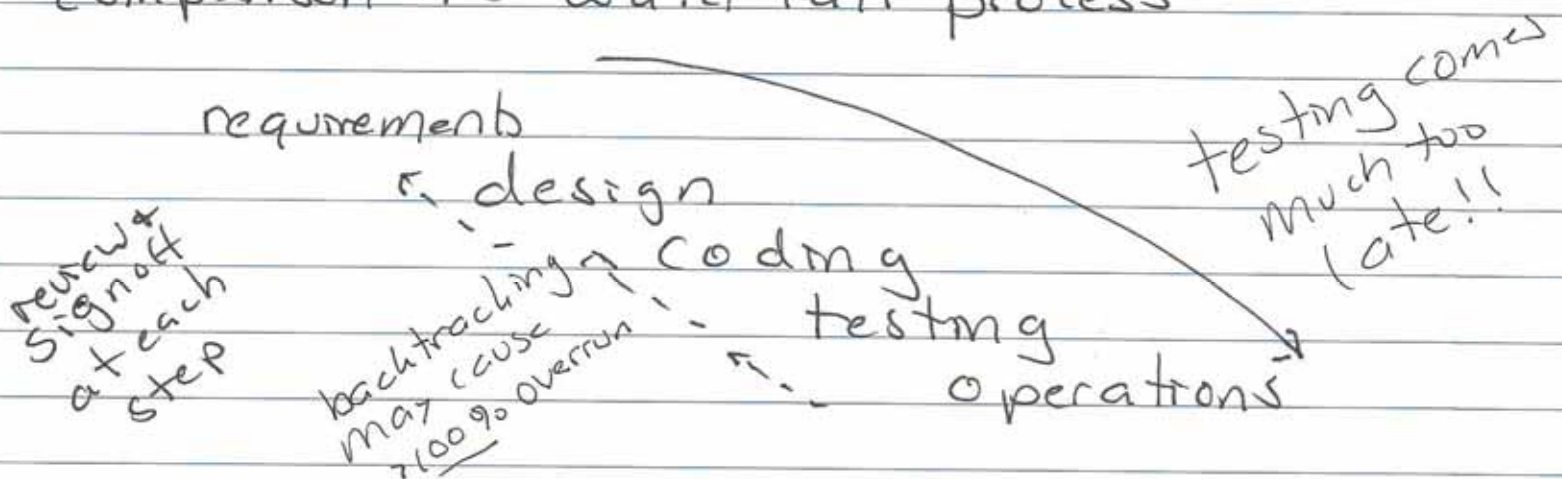 comparison to waterfall process
requirements
design
coding
testing
operations
testing comes
much too
late!!
review &
signoff
at each
step
backtracking
may cause
>100% overrun